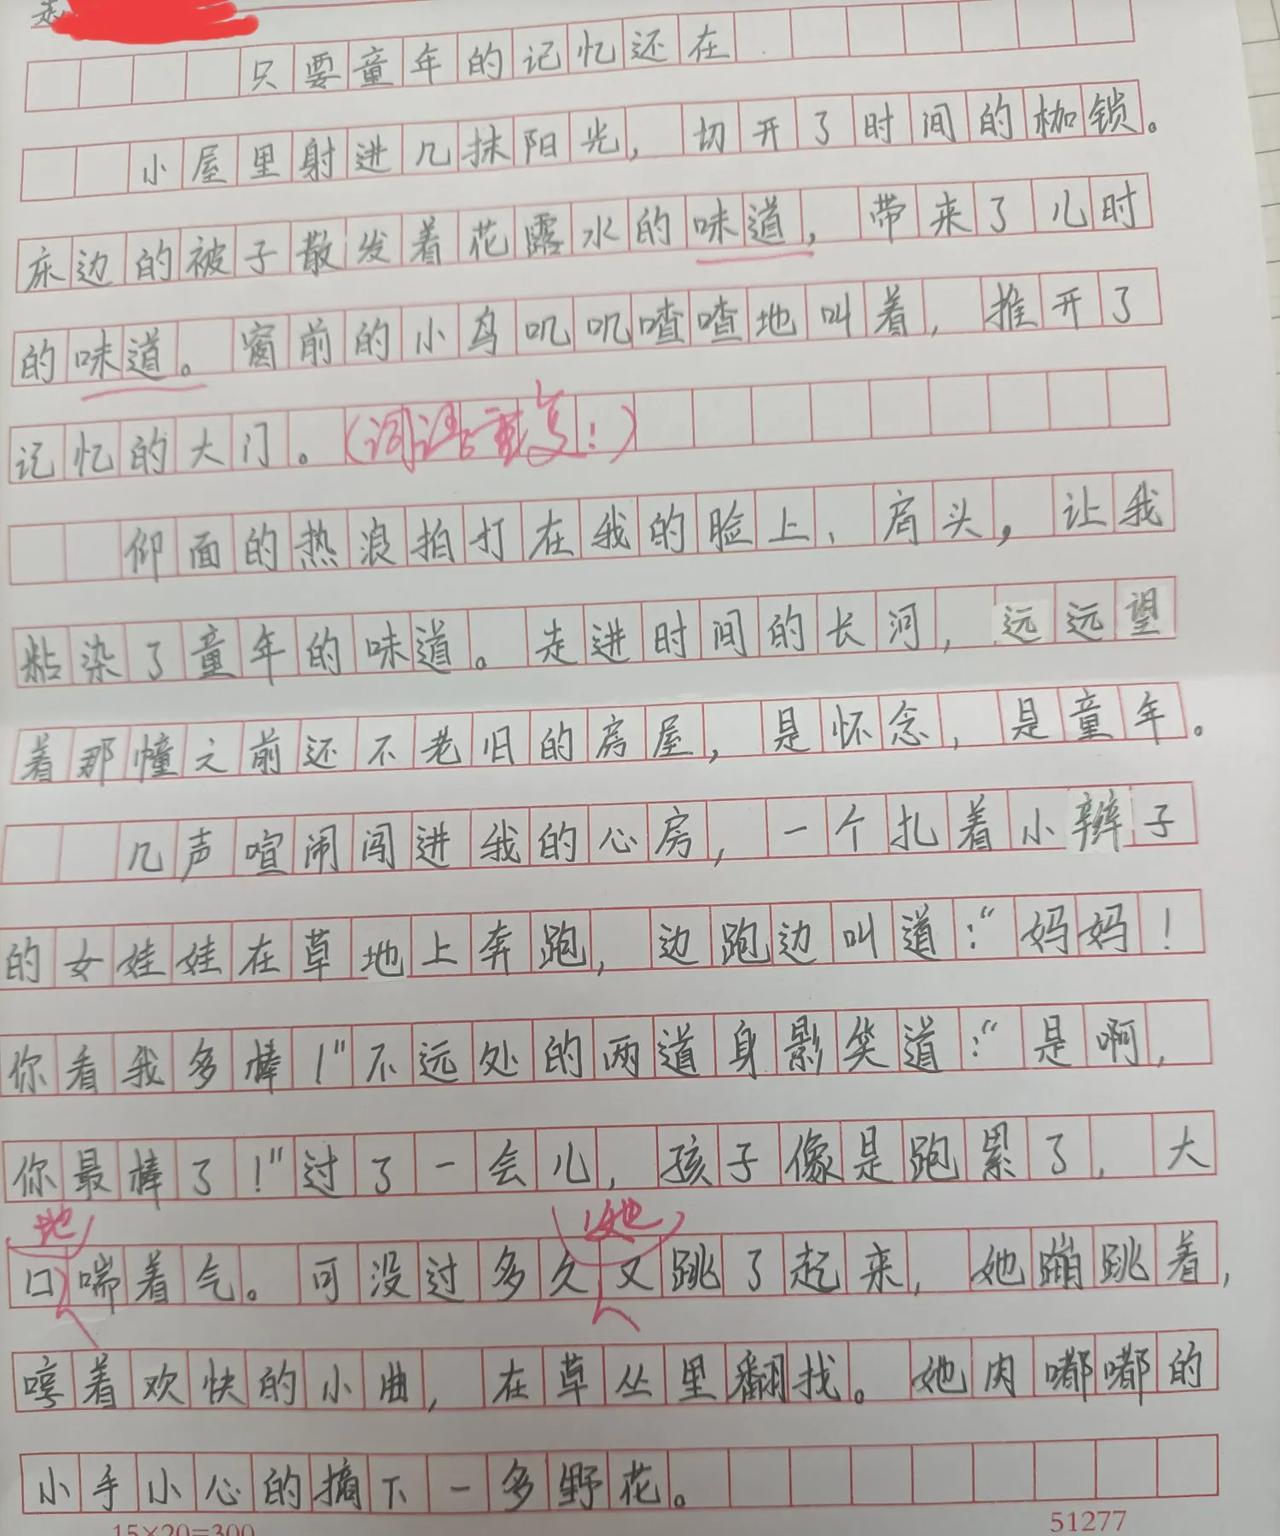 只要童年的记忆还在
小屋里射进几抹阳光，切开了时间的枷锁。
床边的被子散发着花露水的味道，带来了儿时
的味道。窗前的小鸟叽叽喳喳地叫着，推开了
记忆的大门。（词语重复！）
仰面的热浪拍打在我的脸上、肩头，让我
粘染了童年的味道。走进时间的长河，远远望
着那幢之前还不老旧的房屋，是怀念，是童年。
几声喧闹闯进我的心房，一个扎着小辫子
的女娃娃在草地上奔跑，边跑边叫道：“妈妈！
你看我多棒！”不远处的两道身影笑道：“是啊，
你最棒了！”过了一会儿，孩子像是跑累了，大
地 她
口喘着气。可没过多久又跳了起来，她蹦跳着，
哼着欢快的小曲，在草丛里翻找。她肉嘟嘟的
小手小心的摘下一多野花。
15×20=300 51277